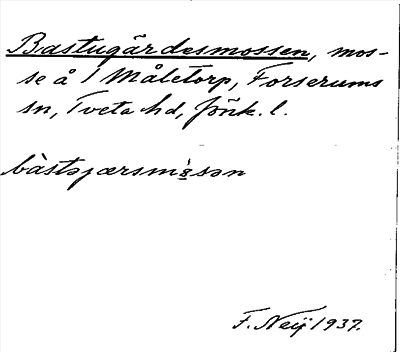 Bastugärdesmossen, mos-
se å 1 Måletorp, Forserums
sn, Tveta hd, Jönk. l.
bàstəjærsmɜ̀sən
F. Neij 1937.